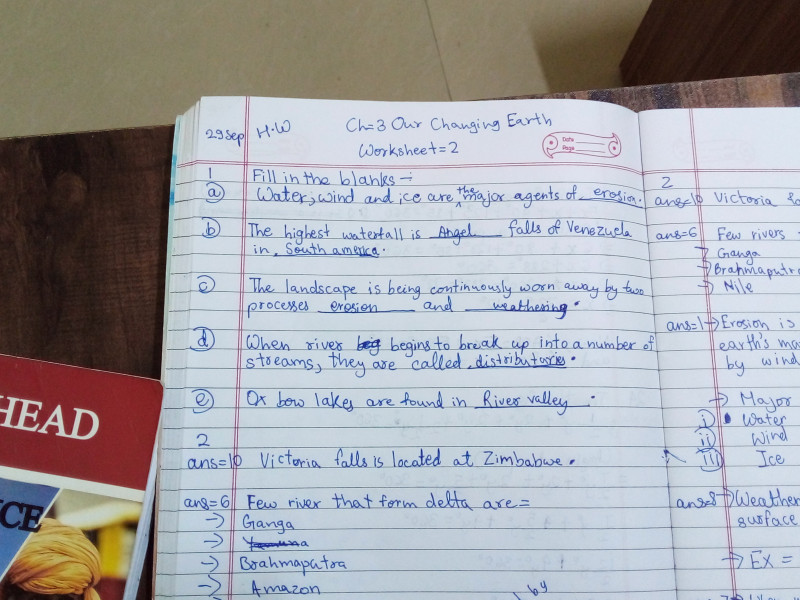 29 Sep H.W Ch=3 Our Changing Earth
Worksheet=2
Date
Page
1 Fill in the blanks :-
a) Water, wind and ice are the major agents of erosion.
b) The highest waterfall is Angel falls of Venezuela
in South america.
c) The landscape is being continuously worn away by two
processes erosion and weathering.
d) When river begins to break up into a number of
streams, they are called distributaries.
e) Ox bow lakes are found in River valley.
2
ans=10 Victoria falls is located at Zimbabwe.
ans=6 Few river that form delta are=
→ Ganga
→ Brahmaputra
→ Amazon
by
2
ans=10 Victoria
ans=6 Few rivers
→ Ganga
→ Brahmaputra
→ Nile
ans=1 → Erosion is
earth's
by wind
→ Major
i) Water
ii) Wind
iii) Ice
ans=8 → Weather
surface
→ Ex =
HEAD
CE